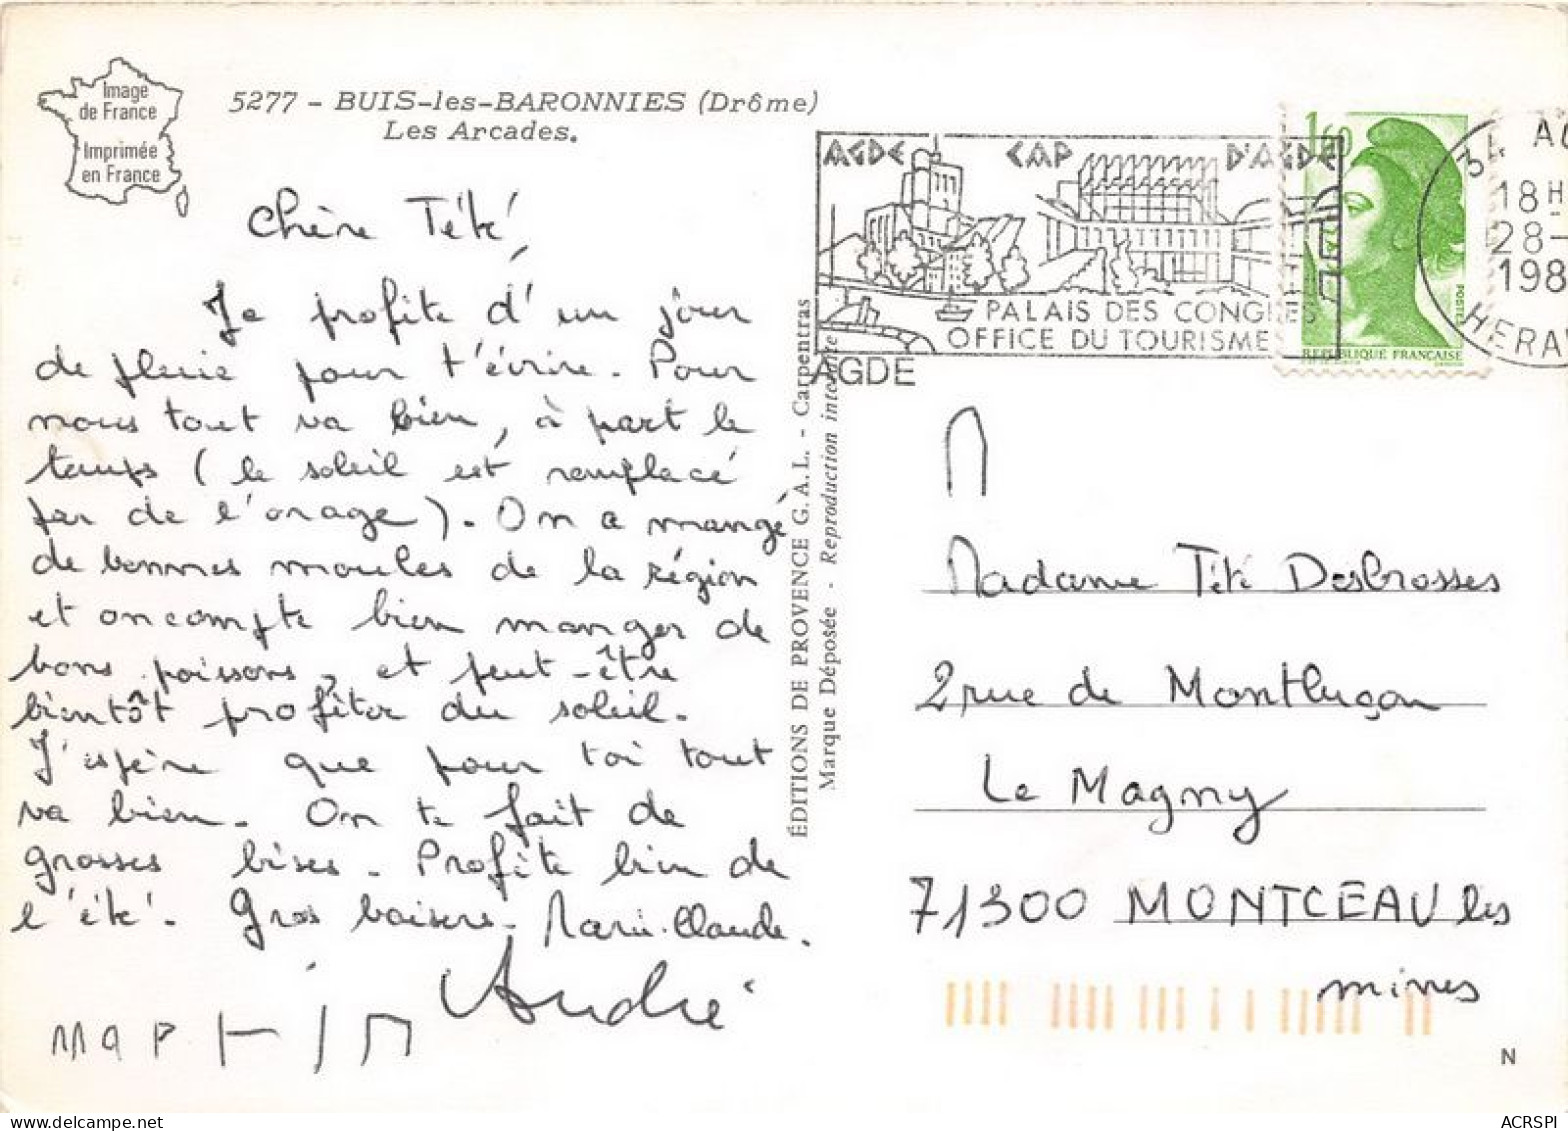 Image
de France
Imprimée
en France
5277 - BUIS-les-BARONNIES (Drôme)
Les Arcades.
Chère Tété,
Je profite d'un jour
de pluie pour t'écrire. Pour
nous tout va bien, à part le
temps (le soleil est remplacé
par de l'orage). On a mangé
de bonnes moules de la région
et on compte bien manger de
bons poissons, et peut-être
bientôt profiter du soleil.
J'espère que pour toi tout
va bien. On te fait de
grosses bises. Profite bien de
l'été. Gros baisers. Marie.Claude.
André
MAPTIN
ÉDITIONS DE PROVENCE G.A.L. - Carpentras
Marque Déposée - Reproduction interdite
AGDE CAP D'AGDE
PALAIS DES CONGRES
OFFICE DU TOURISME
AGDE
1,60
POSTES
REPUBLIQUE FRANÇAISE
34 AG
18H
28-
198
HERAU
Madame Tété Desbrosses
2 rue de Montluçon
Le Magny
71300 MONTCEAU les
mines
N
ACRSPI
delcampe.net